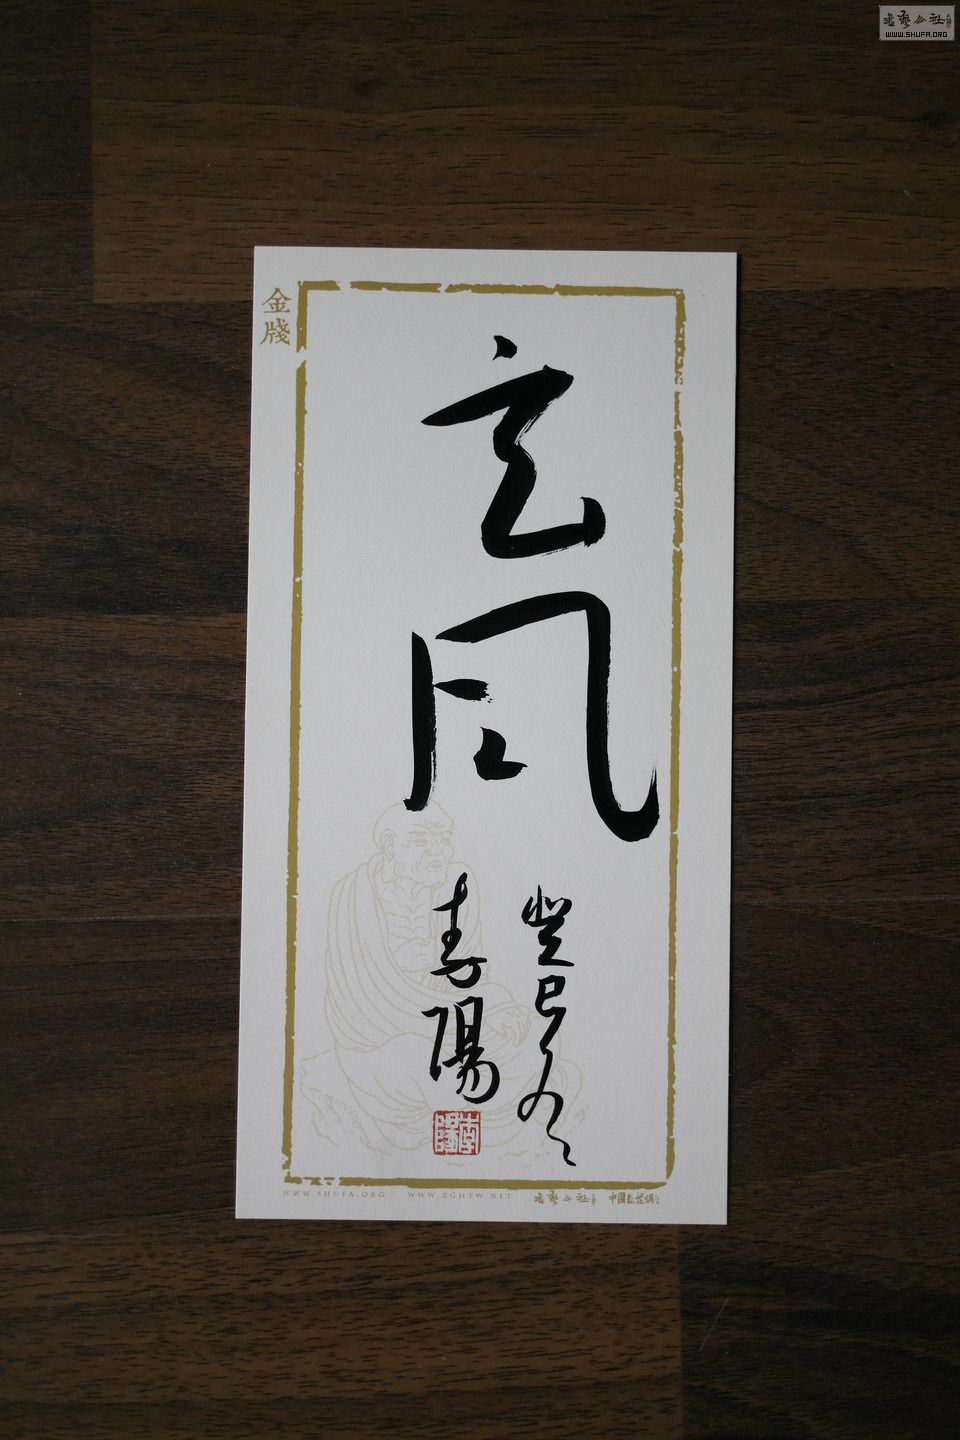 書藝公社
WWW.SHUFA.ORG
金
牋
玄
风
癸巳冬
李陽
WWW.SHUFA.ORG
WWW.ZGHTW.NET
書藝公社